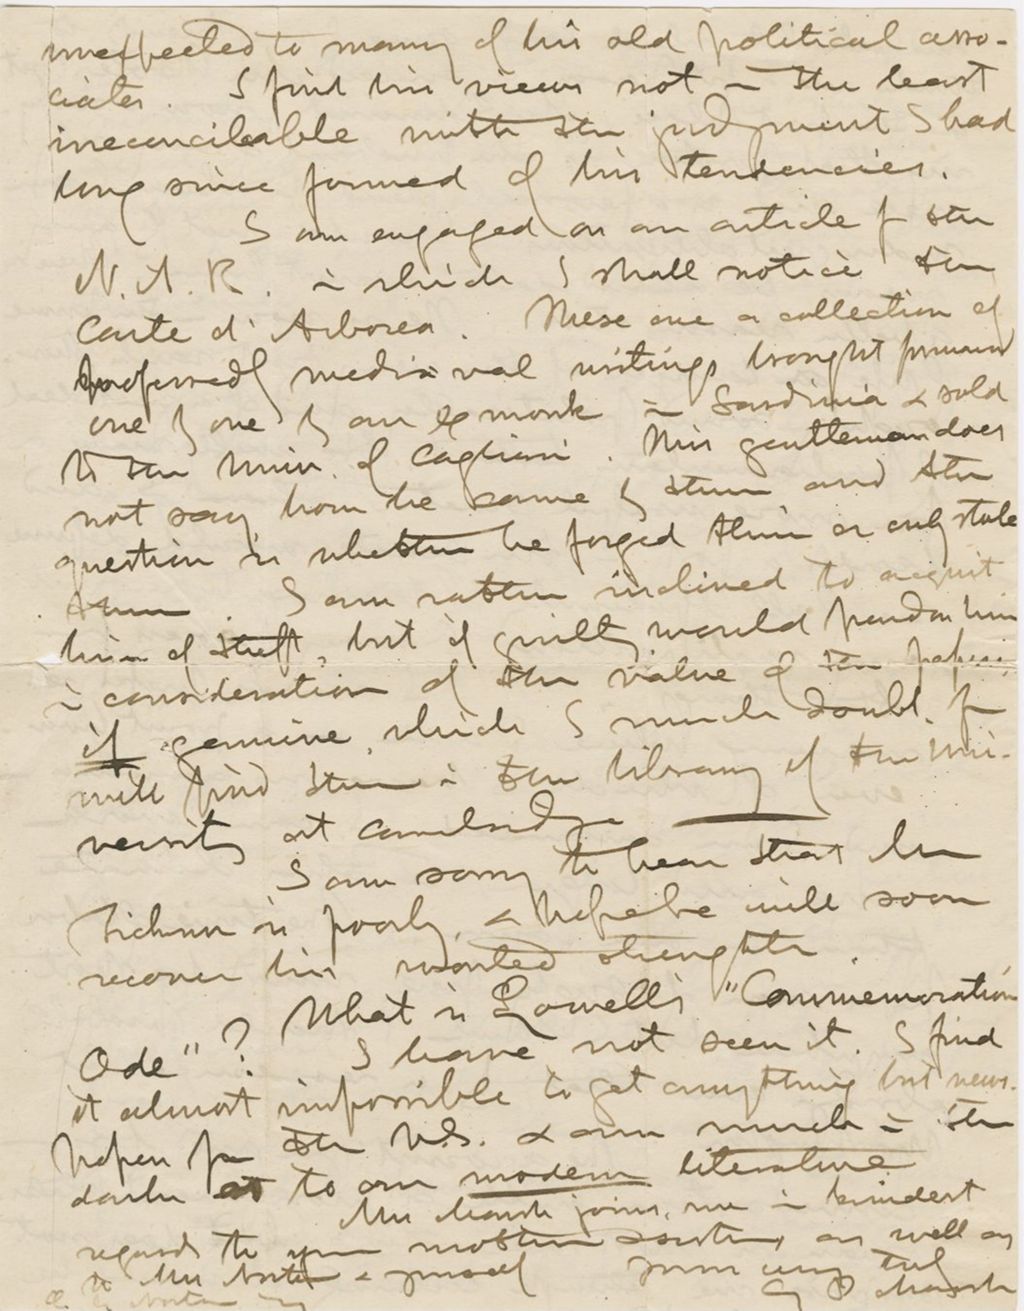 unexpected to many of his old political asso-
ciates. I find his views not in the least
irreconcilable with the judgment I had
long since formed of his tendencies.
I am engaged on an article for the
N. A. R. in which I shall notice the
Carte d'Arborea. These are a collection of
professedly mediæval writings brought forward
one by one by an ex monk in Sardinia & sold
to the Univ. of Cagliari. This gentleman does
not say how he came by them and the
question is whether he forged them or only stole
them. I am rather inclined to acquit
him of theft, but if guilty would pardon him
in consideration of the value of the papers
if genuine, which I much doubt. You
will find them in the library of the Uni-
versity at Cambridge
I am sorry to hear that Mr
Ticknor is poorly, & hope he will soon
recover his wonted strength.
What is Lowell's "Commemoration
Ode"? I have not seen it. I find
it almost impossible to get anything but news-
paper from the U.S. & am much in the
dark as to our modern literature
Mrs Marsh joins me in kindest
regards to your mother & sisters, as well as
to Mrs Norton & yourself yours very truly
G P Marsh
C. E. Norton Esq